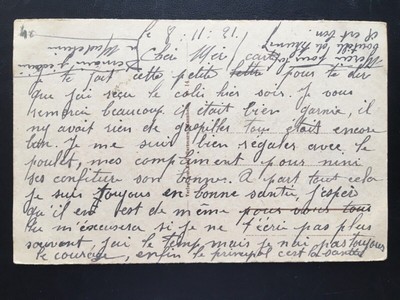 le 8.11.21.
Cher Mir
Je te fait cette petite lettre carte pour te dire
que j'ai reçu le colis hier soir. Je vous
remercie beaucoup. il était bien garnie, il
ny avait rien de gaspiller tous était encore
bon. Je me suis bien regaler avec le
poulet, mes compliment pour nini
ses confiture son bonnes. A part tout cela
je suis toujours en bonne santée, j'espère
qu'il en est de même pour vous tous
tu m'excusera si je ne t'écris pas plus
souvent, j'ai le temp mais je n'ai pas toujours
le courage, enfin le principal c'est la santée